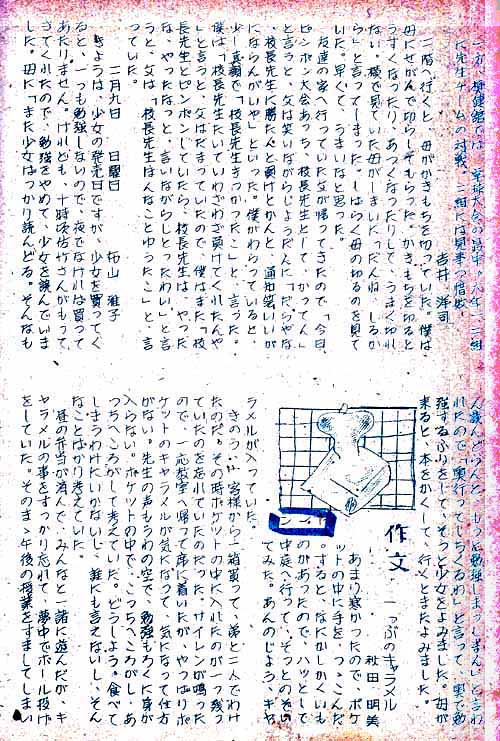 一方、健館では、卓球大会の
た先生チームの対戦。
吉井 洋司
二階へ行くと、母がかきもちを切っていた。僕は、
母にせがんで切らしてもらった。かきもちを切ると
うすくなったり、あつくなったりして、うまく切れ
ない。横で見ていた母が「しまいに
ら」と言ってしまった。しばらく母の切るのを見て
いた。早くて、うまいなと思った。
友達の家へ行っていた父が帰ってきたので「今日
ピンポン大会あって、しはら、校長先生として、かってん」
と言うと、父は笑いながらじょうだんに「だらやな
、校長先生に勝たんと負けとかんと、通知
にならんがいや」といった。僕がわらっていると
少し真顔で「校長先生きつかったこ」と、言った。
僕は「校長先生たいていわざわざ負けてくれたんや
」と言うと、父はだまっていたので、僕はまた「校
長先生とピンポンしていたら、校長先生は、やった
な、やったなっと、言いながらしとったわい」と言
うと、父は「校長先生はんなことゆうたこ」と、言
っていた。
二月九日 日曜日
柘山 雅子
きょうは、少女の発売日ですが、少女を買ってく
ると、一つも勉強しないので、夜でなければ買って
あたりません。けれども、十時頃佐竹さんがもって
きてくれたので、勉強をやめて、少女を読んでいま
した。母に「また少女ばっかり読んどる。そんなも
ん読んどらんと、もっと勉強しまっしま」と言わ
れたので「奥行ってしてくるわ」と言って、奥で勉
強するふりをして、そっと少女をよみました。母が
来ると、本をかくして、行くとまたよみました。
作文
一つぶのキャラメル
秋田 明美
あまり寒かったので、ポケ
ットの中に手を、つっこんだ
。すると、なにかしかくいも
のがあったので、ハッとして
中庭へ行って、そっとのぞい
てみた。あんのじょう、キャ
ラメルが入っていた。
きのう、お客様から一箱貰って、弟と二人でわけ
たのだ。その時ポケットの中に入れたのが一つ残っ
ていたのを忘れていたのだった。サイレンが鳴った
ので、一応教室へ帰って席に着いたが、やっぱりポ
ケットのキャラメルが気になって、気になって仕方
がない。先生の声もうわの空で、勉強もろくに身が
入らない。ポケットの中で、こっちへころがし、あ
っちへころがして考えていた。どうしよう。食べて
しまうわけにいかないし、誰にも言えないし、そん
なことばかり考えていた。
昼の弁当が済んで、みんなと一諸に遊んだが、キ
ャラメルの事をすっかり忘れて、夢中でボール投げ
をしていた。そのまゝ午後の授業をすましてしまい